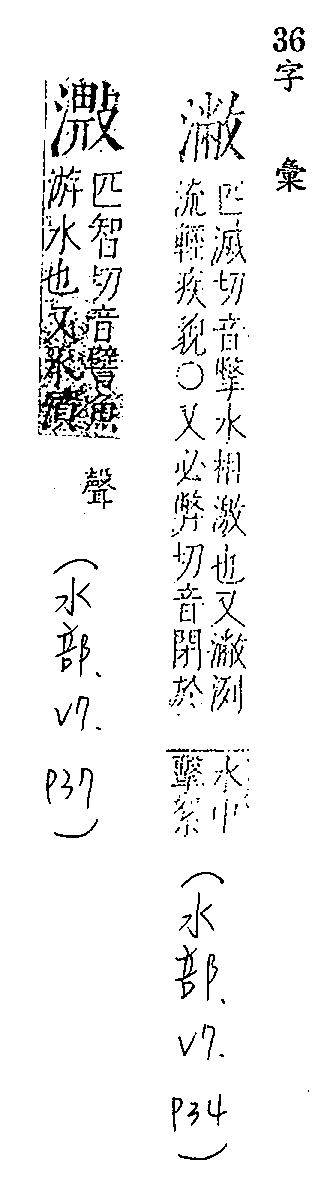 36字 彙
潎
匹滅切音撆水相激也又潎洌 水中
流輕疾貌〇又必弊切音閉於 擊絮
(水部、V7. P34)
匹智切音譬魚
游水也又水漬
聲
(水部、V7. P37)